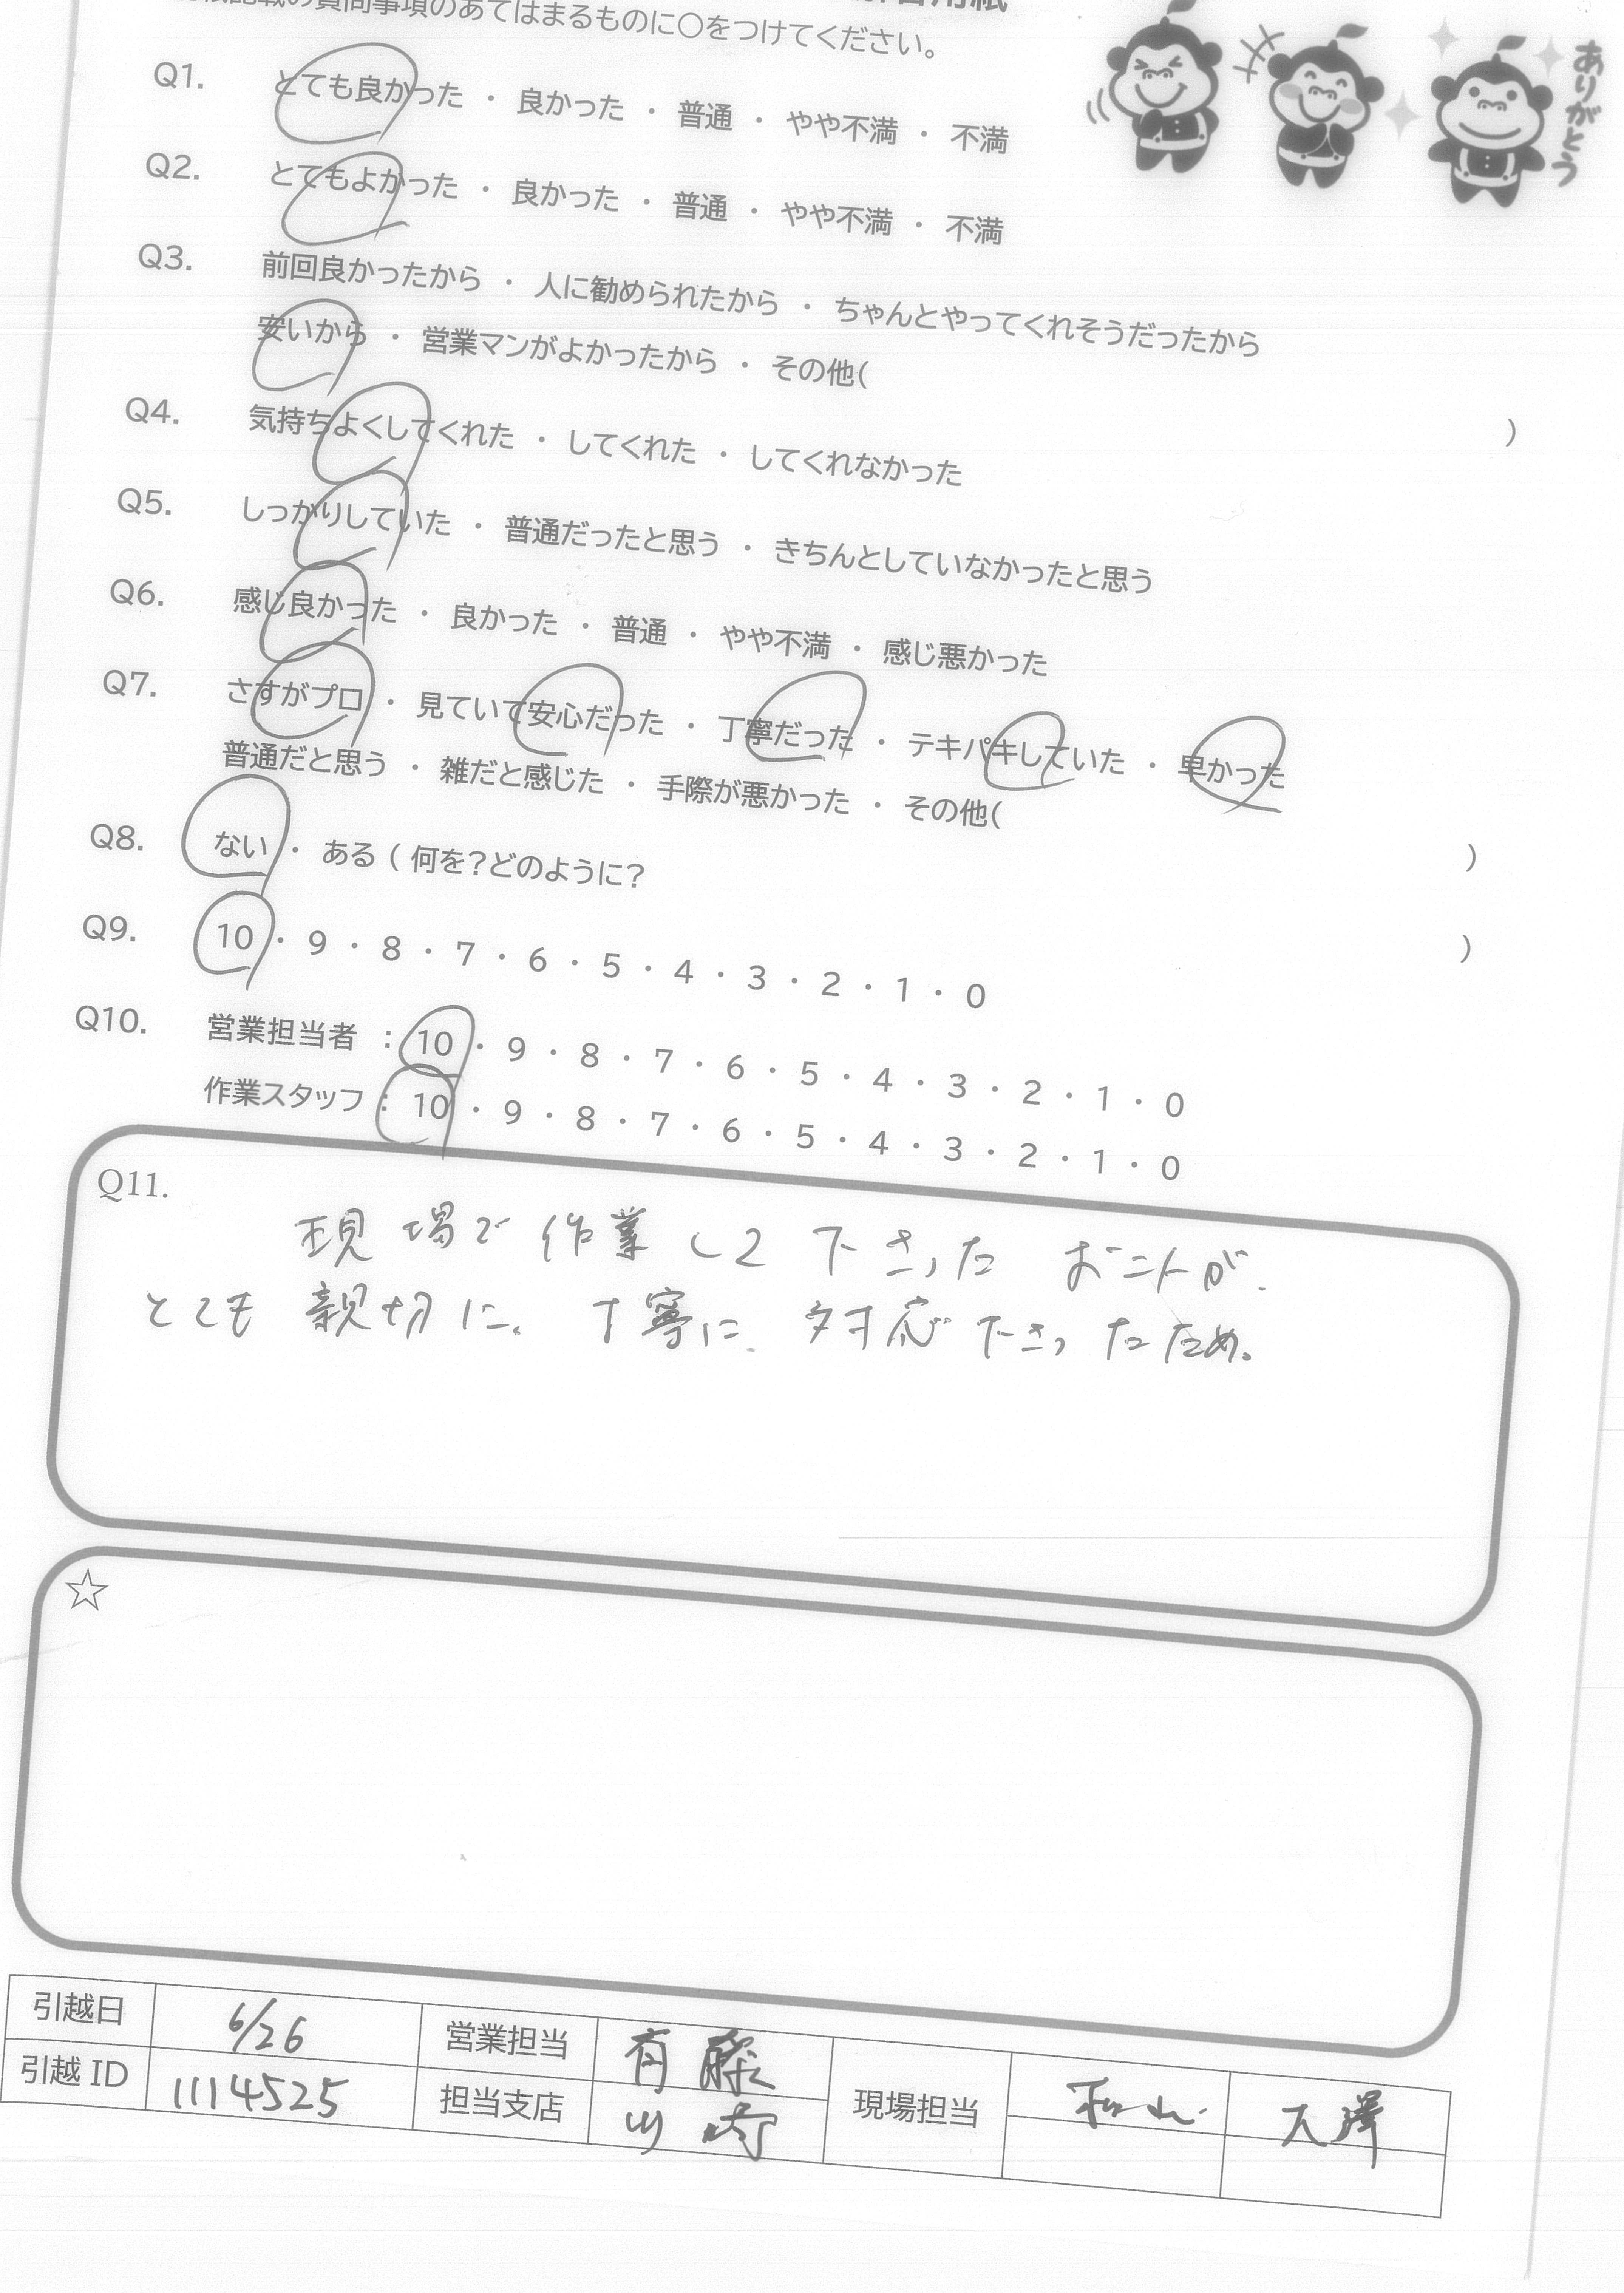 記載の質問事項のあてはまるものに〇をつけてください。
ありがとう
Q1. とても良かった ・ 良かった ・ 普通 ・ やや不満 ・ 不満
Q2. とてもよかった ・ 良かった ・ 普通 ・ やや不満 ・ 不満
Q3. 前回良かったから ・ 人に勧められたから ・ ちゃんとやってくれそうだったから
安いから ・ 営業マンがよかったから ・ その他( )
Q4. 気持ちよくしてくれた ・ してくれた ・ してくれなかった
Q5. しっかりしていた ・ 普通だったと思う ・ きちんとしていなかったと思う
Q6. 感じ良かった ・ 良かった ・ 普通 ・ やや不満 ・ 感じ悪かった
Q7. さすがプロ ・ 見ていて安心だった ・ 丁寧だった ・ テキパキしていた ・ 早かった
普通だと思う ・ 雑だと感じた ・ 手際が悪かった ・ その他( )
Q8. ない ・ ある ( 何を?どのように? )
Q9. 10 ・ 9 ・ 8 ・ 7 ・ 6 ・ 5 ・ 4 ・ 3 ・ 2 ・ 1 ・ 0
Q10. 営業担当者 : 10 ・ 9 ・ 8 ・ 7 ・ 6 ・ 5 ・ 4 ・ 3 ・ 2 ・ 1 ・ 0
作業スタッフ : 10 ・ 9 ・ 8 ・ 7 ・ 6 ・ 5 ・ 4 ・ 3 ・ 2 ・ 1 ・ 0
Q11.
現場で作業して下さった お二人が、
とても 親切に、丁寧に、対応下さったため。
☆
引越日 6/26 営業担当 斉藤
引越ID 1114525 担当支店 川崎 現場担当 大澤